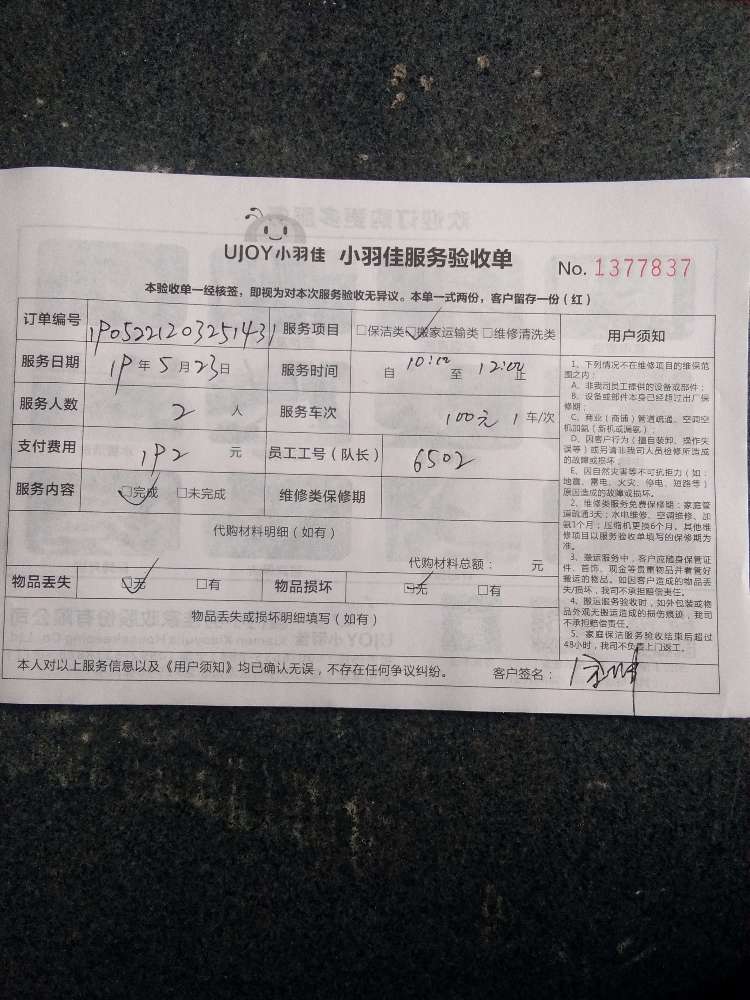 UJOY小羽佳 小羽佳服务验收单
No. 1377837
本验收单一经核签，即视为对本次服务验收无异议。本单一式两份，客户留存一份（红）
订单编号 190522120325143 服务项目 □保洁类 □搬家运输类 □维修清洗类
服务日期 19年5月23日 服务时间 自 10:00 至 12:00 止
服务人数 2 人 服务车次 100元 1 车/次
支付费用 192 元 员工工号（队长） 6502
服务内容 □完成 □未完成 维修类保修期
代购材料明细（如有）
代购材料总额： 元
物品丢失 □无 □有 物品损坏 □无 □有
物品丢失或损坏明细填写（如有）
本人对以上服务信息以及《用户须知》均已确认无误，不存在任何争议纠纷。 客户签名：
用户须知
1、下列情况不在维修项目的维保范
围之内：
A、非我司员工提供的设备或部件；
B、设备或部件本身已经超过出厂保
修期；
C、商业（商铺）管道疏通、空调空
机加氨（新机或漏氨）；
D、因客户行为（擅自装卸、操作失
误等）或另请非我司人员检修所造成
的故障或损坏；
E、因自然灾害等不可抗拒力（如：
地震、雷电、火灾、停电、短路等）
原因造成的故障或损坏。
2、维修类服务免费保修期：家庭管
道疏通3天；水电维修、空调维修、加
氨1个月；压缩机更换6个月，其他维
修项目以服务验收单填写的保修期为
准。
3、搬运服务中，客户应随身保管证
件、首饰、现金等贵重物品并看管好
搬运的物品。如因客户造成的物品丢
失/损坏，我司不承担赔偿责任。
4、搬运服务验收时，如外包装或物
品外观无搬运造成的损伤痕迹，我司
不承担赔偿责任。
5、家庭保洁服务验收结束后超过
48小时，我司不负责上门返工。